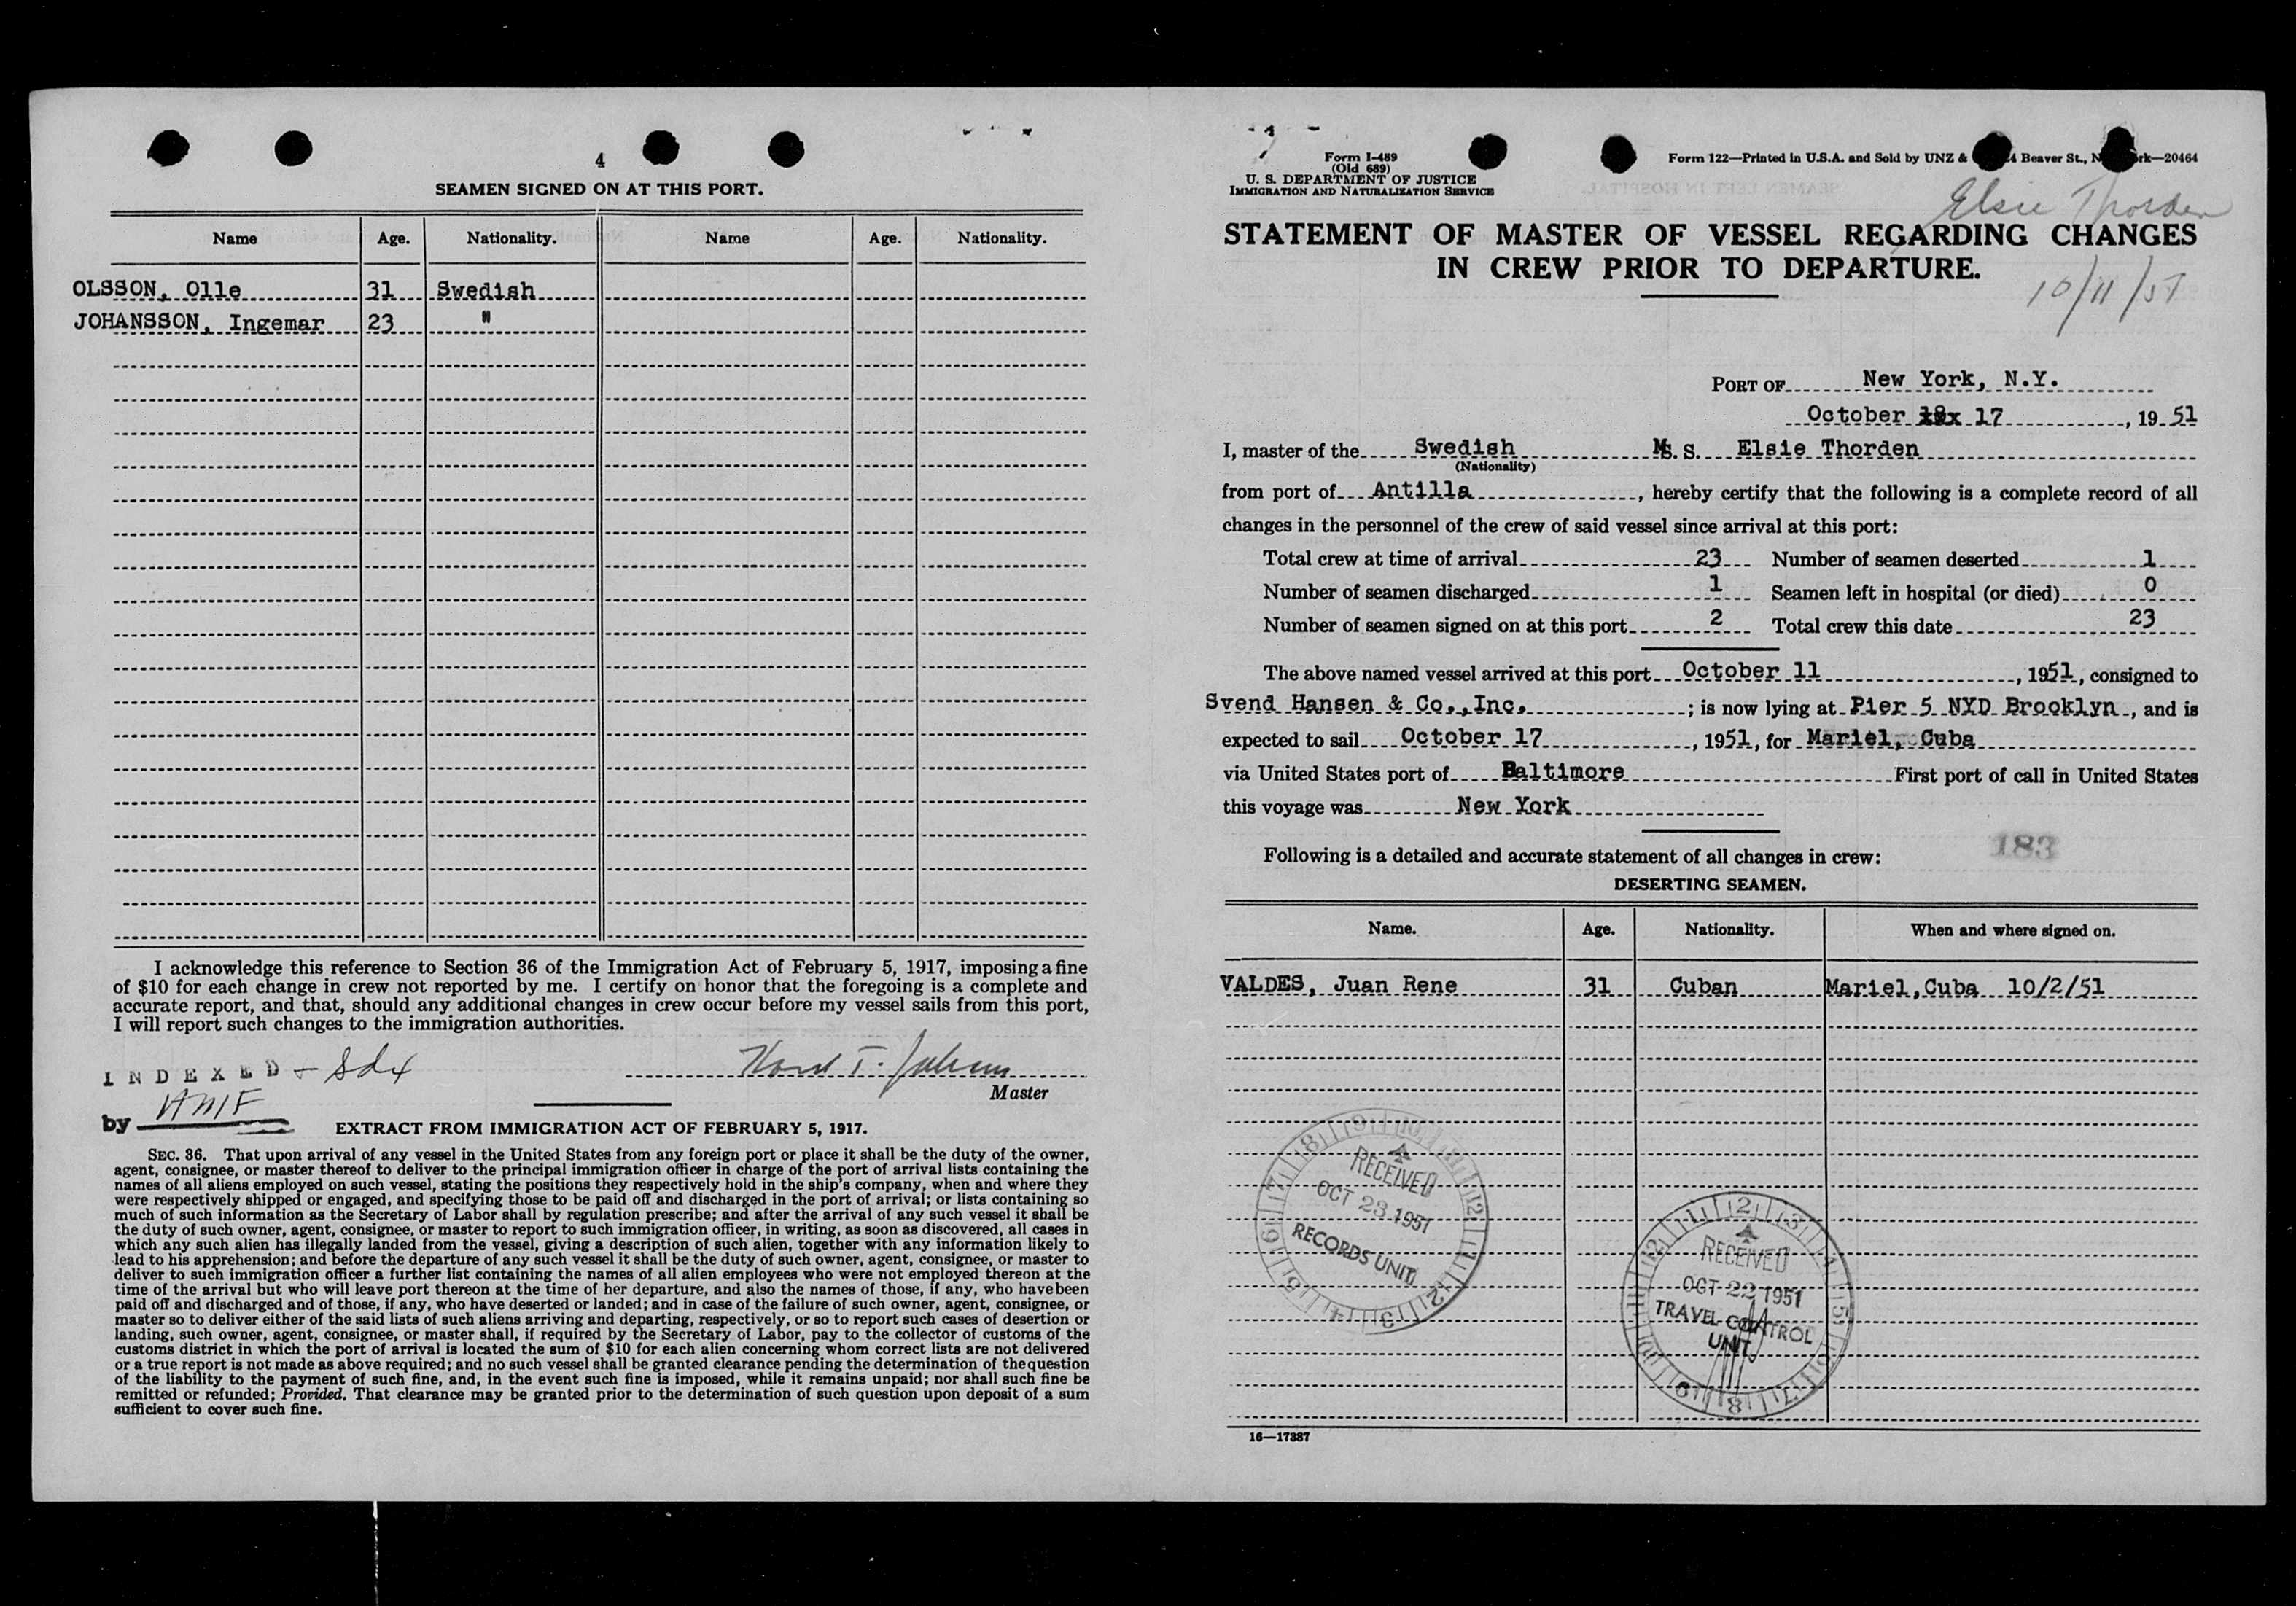 4
SEAMEN SIGNED ON AT THIS PORT.
Name Age. Nationality. Name Age. Nationality.
OLSSON, Olle 31 Swedish
JOHANSSON, Ingemar 23 "
I acknowledge this reference to Section 36 of the Immigration Act of February 5, 1917, imposing a fine
of $10 for each change in crew not reported by me. I certify on honor that the foregoing is a complete and
accurate report, and that, should any additional changes in crew occur before my vessel sails from this port,
I will report such changes to the immigration authorities.
INDEXED
Master
by
EXTRACT FROM IMMIGRATION ACT OF FEBRUARY 5, 1917.
SEC. 36. That upon arrival of any vessel in the United States from any foreign port or place it shall be the duty of the owner,
agent, consignee, or master thereof to deliver to the principal immigration officer in charge of the port of arrival lists containing the
names of all aliens employed on such vessel, stating the positions they respectively hold in the ship's company, when and where they
were respectively shipped or engaged, and specifying those to be paid off and discharged in the port of arrival; or lists containing so
much of such information as the Secretary of Labor shall by regulation prescribe; and after the arrival of any such vessel it shall be
the duty of such owner, agent, consignee, or master to report to such immigration officer, in writing, as soon as discovered, all cases in
which any such alien has illegally landed from the vessel, giving a description of such alien, together with any information likely to
lead to his apprehension; and before the departure of any such vessel it shall be the duty of such owner, agent, consignee, or master to
deliver to such immigration officer a further list containing the names of all alien employees who were not employed thereon at the
time of the arrival but who will leave port thereon at the time of her departure, and also the names of those, if any, who have been
paid off and discharged and of those, if any, who have deserted or landed; and in case of the failure of such owner, agent, consignee, or
master so to deliver either of the said lists of such aliens arriving and departing, respectively, or so to report such cases of desertion or
landing, such owner, agent, consignee, or master shall, if required by the Secretary of Labor, pay to the collector of customs of the
customs district in which the port of arrival is located the sum of $10 for each alien concerning whom correct lists are not delivered
or a true report is not made as above required; and no such vessel shall be granted clearance pending the determination of the question
of the liability to the payment of such fine, and, in the event such fine is imposed, while it remains unpaid; nor shall such fine be
remitted or refunded; Provided, That clearance may be granted prior to the determination of such question upon deposit of a sum
sufficient to cover such fine.
Form I-489
(Old 689)
U. S. DEPARTMENT OF JUSTICE
IMMIGRATION AND NATURALIZATION SERVICE
Form 122—Printed in U.S.A. and Sold by UNZ & Beaver St., 20464
Elsie Thorden
STATEMENT OF MASTER OF VESSEL REGARDING CHANGES
IN CREW PRIOR TO DEPARTURE.
10/11/51
PORT OF New York, N.Y.
October 17, 1951
I, master of the Swedish M.S. Elsie Thorden
(Nationality)
from port of Antilla, hereby certify that the following is a complete record of all
changes in the personnel of the crew of said vessel since arrival at this port:
Total crew at time of arrival 23 Number of seamen deserted 1
Number of seamen discharged 1 Seamen left in hospital (or died) 0
Number of seamen signed on at this port 2 Total crew this date 23
The above named vessel arrived at this port October 11, 1951, consigned to
Svend Hansen & Co., Inc.; is now lying at Pier 5 NYD Brooklyn, and is
expected to sail October 17, 1951, for Mariel, Cuba
via United States port of Baltimore First port of call in United States
this voyage was New York
183
Following is a detailed and accurate statement of all changes in crew:
DESERTING SEAMEN.
Name. Age. Nationality. When and where signed on.
VALDES, Juan Rene 31 Cuban Mariel, Cuba 10/2/51
RECEIVED
OCT 23 1951
RECORDS UNIT
RECEIVED
OCT 22 1951
TRAVEL CONTROL
UNIT
16—17387